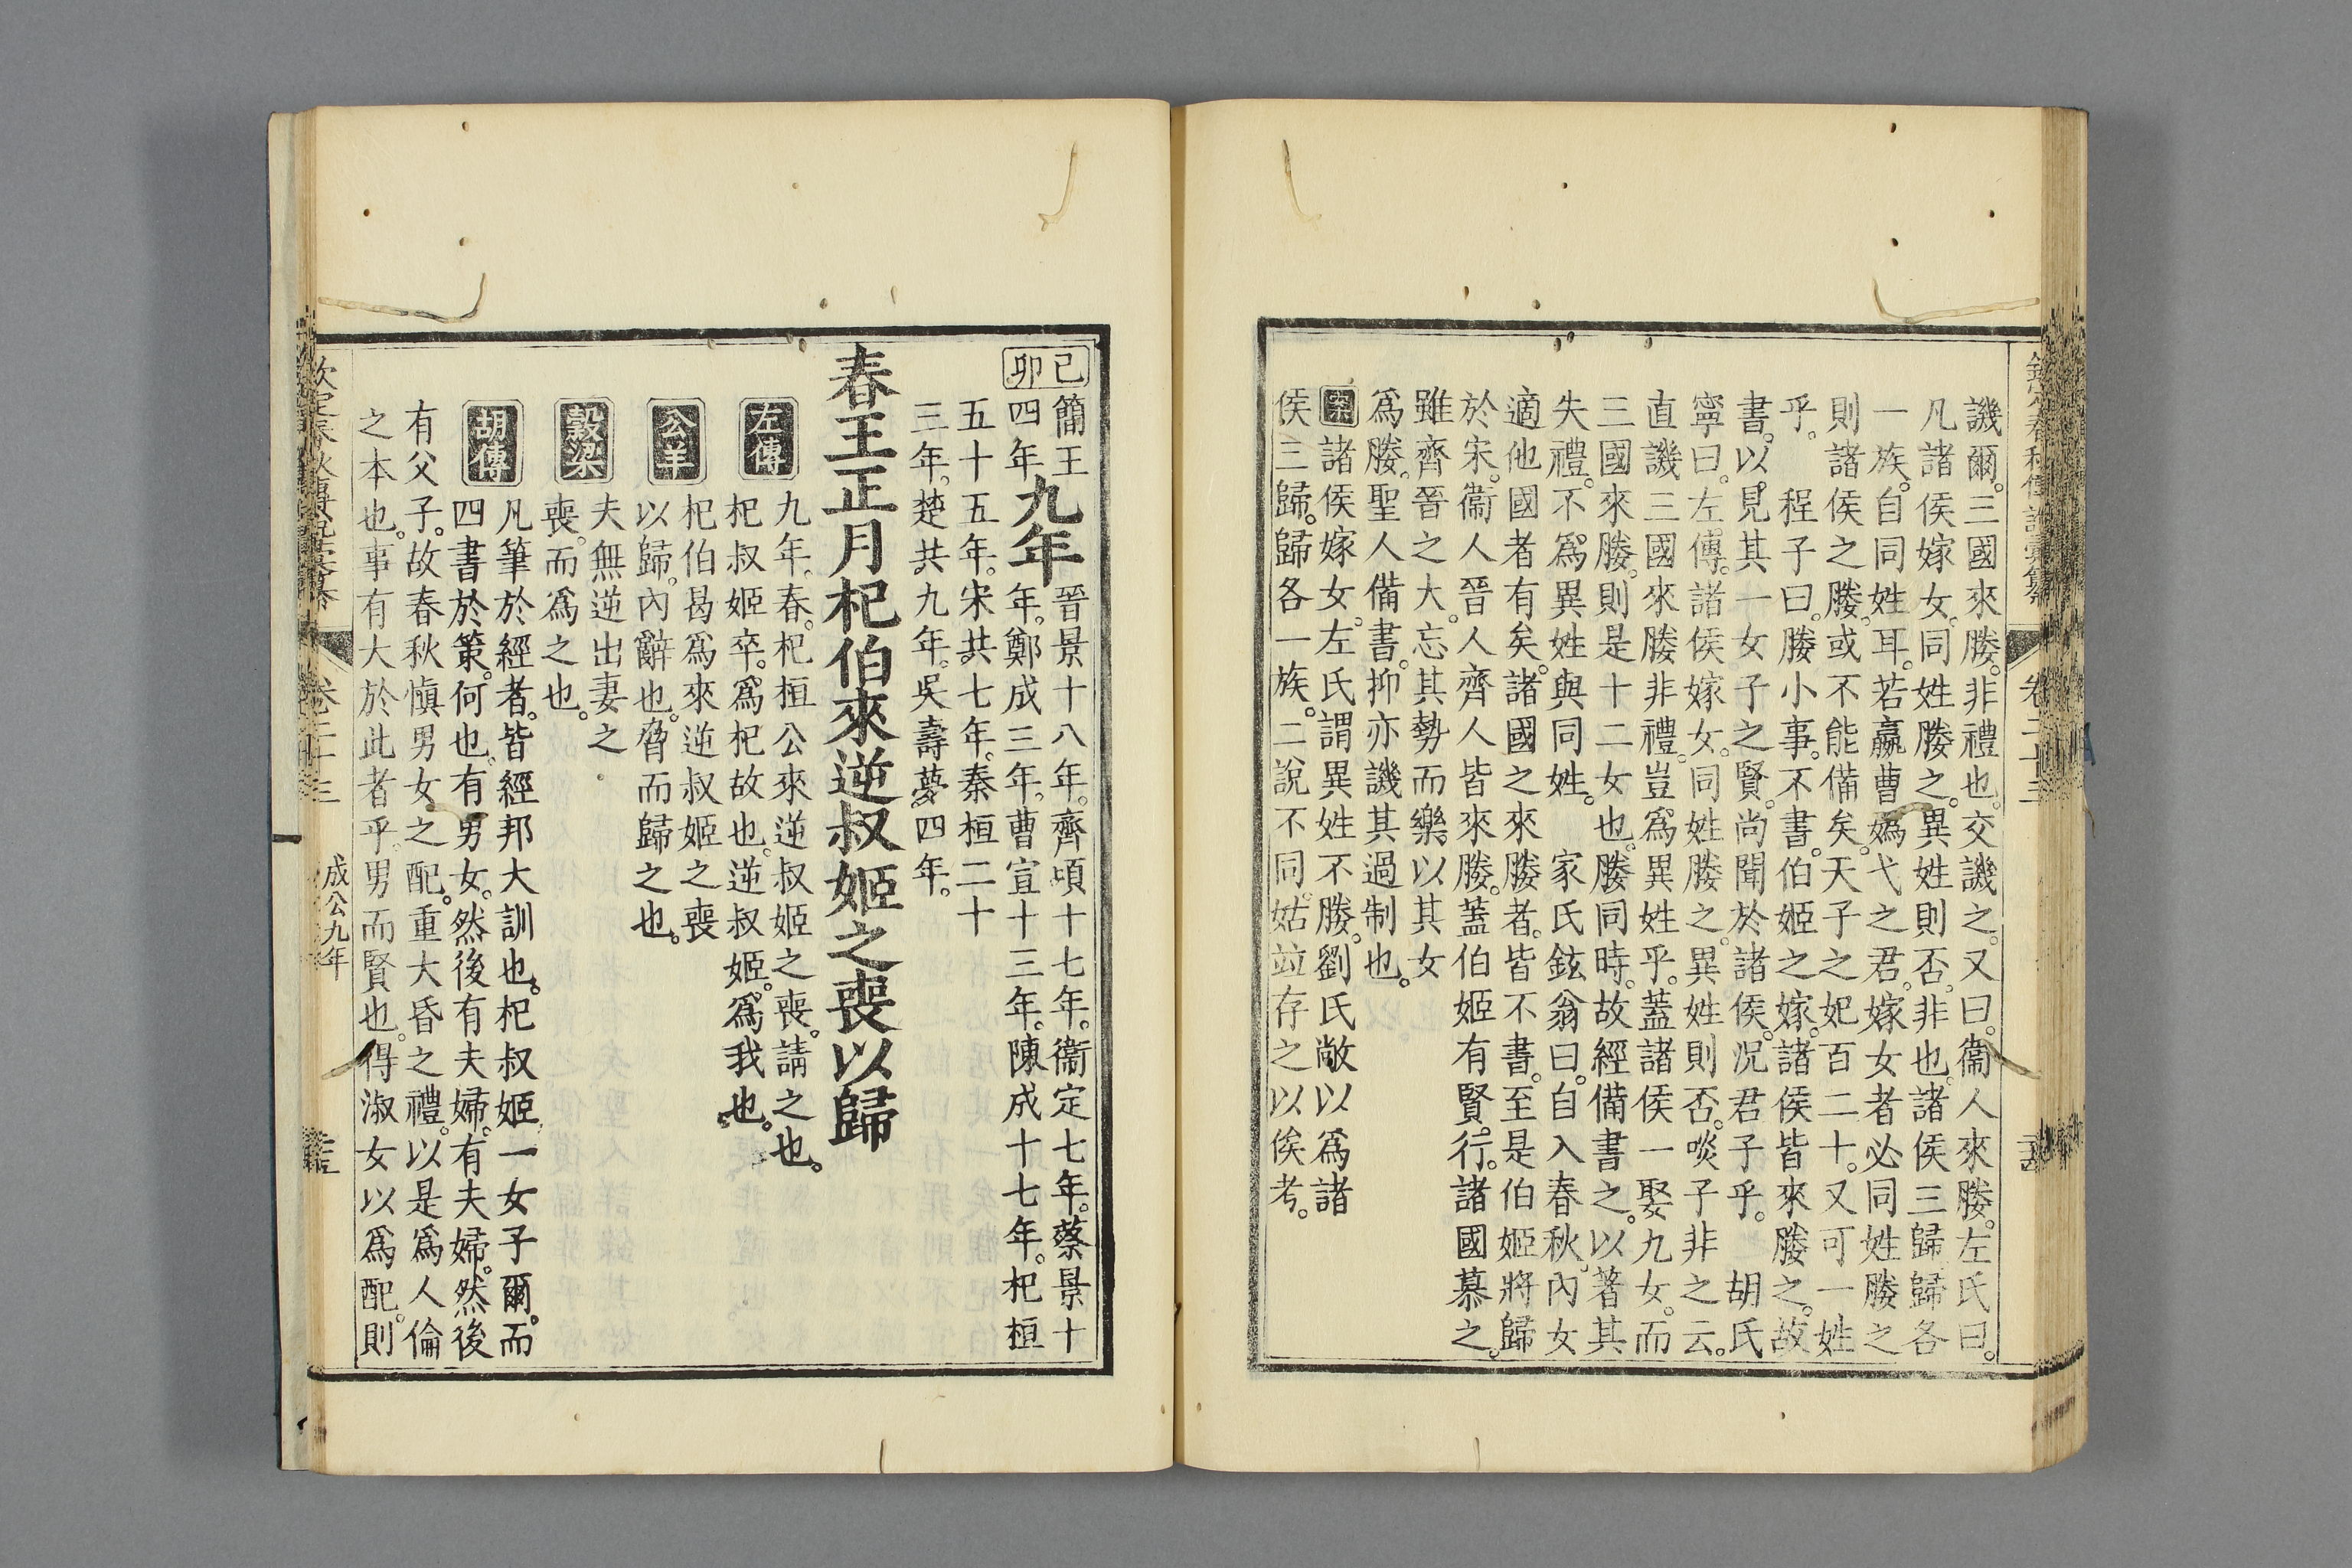 譏爾。三國來媵。非禮也。交譏之。又曰。衞人來媵。左氏曰。
凡諸侯嫁女。同姓媵之。異姓則否。非也。諸侯三歸歸各
一族。自同姓耳。若嬴曹嬀弋之君。嫁女者必同姓媵之
則諸侯之媵。或不能備矣。天子之妃百二十。又可一姓
乎。　程子曰。媵小事。不書。伯姬之嫁。諸侯皆來媵之。故
書。以見其一女子之賢。尚聞於諸侯。況君子乎。　胡氏
寧曰。左傳。諸侯嫁女。同姓媵之。異姓則否。啖子非之云。
直譏三國來媵非禮。豈爲異姓乎。蓋諸侯一娶九女。而
三國來媵。則是十二女也。媵同時。故經備書之。以著其
失禮。不爲異姓與同姓。　家氏鉉翁曰。自入春秋。內女
適他國者有矣。諸國之來媵者。皆不書。至是伯姬將歸
於宋。衞人晉人齊人皆來媵。蓋伯姬有賢行。諸國慕之。
雖齊晉之大。忘其勢而樂以其女
爲媵。聖人備書。抑亦譏其過制也。
案諸侯嫁女。左氏謂異姓不媵。劉氏敞以爲諸
侯三歸。歸各一族。二說不同。姑竝存之以俟考。
欽定春秋傳說彙纂　卷二十三
己卯
簡王四年九年晉景十八年。齊頃十七年。衞定七年。蔡景十
年。鄭成三年。曹宣十三年。陳成十七年。杞桓
五十五年。宋共七年。秦桓二十
三年。楚共九年。吳壽夢四年。
春王正月杞伯來逆叔姬之喪以歸
左傳九年。春。杞桓公來逆叔姬之喪。請之也。
杞叔姬卒。爲杞故也。逆叔姬。爲我也。
公羊杞伯曷爲來逆叔姬之喪
以歸。內辭也。脅而歸之也。
穀梁夫無逆出妻之
喪。而爲之也。
胡傳凡筆於經者。皆經邦大訓也。杞叔姬一女子爾。而
四書於策。何也。有男女。然後有夫婦。有夫婦。然後
有父子。故春秋慎男女之配。重大昏之禮。以是爲人倫
之本也。事有大於此者乎。男而賢也。得淑女以爲配。則
欽定春秋傳說彙纂　卷二十三　成公九年